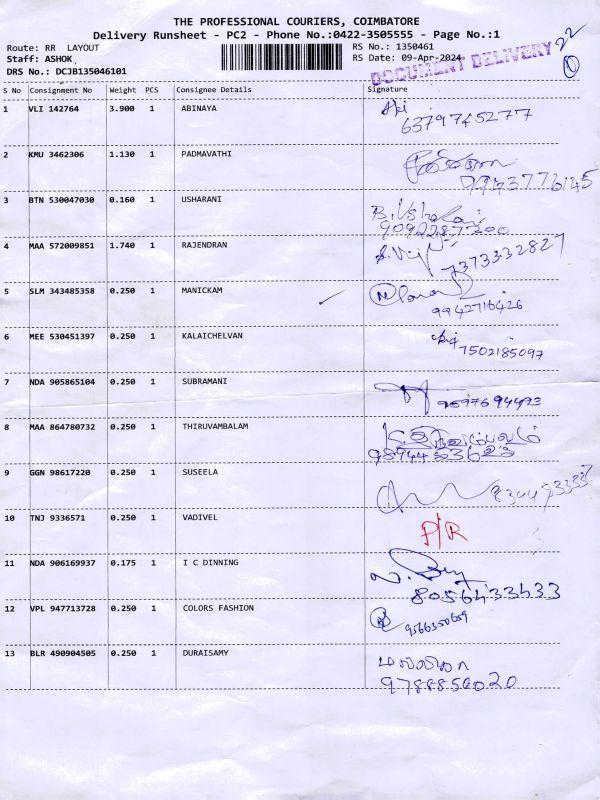 THE PROFESSIONAL COURIERS, COIMBATORE
Delivery Runsheet - PC2 - Phone No.:0422-3505555 - Page No.:1
Route: RR LAYOUT RS No.: 1350461
Staff: ASHOK RS Date: 09-Apr-2024
DRS No.: DCJB135046101
DOCUMENT DELIVERY 22
1
S No Consignment No Weight PCS Consignee Details Signature
1 VLI 142764 3.900 1 ABINAYA
6379745277
2 KMU 3462306 1.130 1 PADMAVATHI
9943776145
3 BTN 530047030 0.160 1 USHARANI
4 MAA 572009851 1.740 1 RAJENDRAN
7373332827
5 SLM 343485358 0.250 1 MANICKAM
9942716426
6 MEE 530451397 0.250 1 KALAICHELVAN
7502185097
7 NDA 905865104 0.250 1 SUBRAMANI
9597694423
8 MAA 864780732 0.250 1 THIRUVAMBALAM
9 GGN 98617220 0.250 1 SUSEELA
10 TNJ 9336571 0.250 1 VADIVEL
P/R
11 NDA 906169937 0.175 1 I C DINNING
8056433433
12 VPL 947713728 0.250 1 COLORS FASHION
9566350659
13 BLR 490904505 0.250 1 DURAISAMY